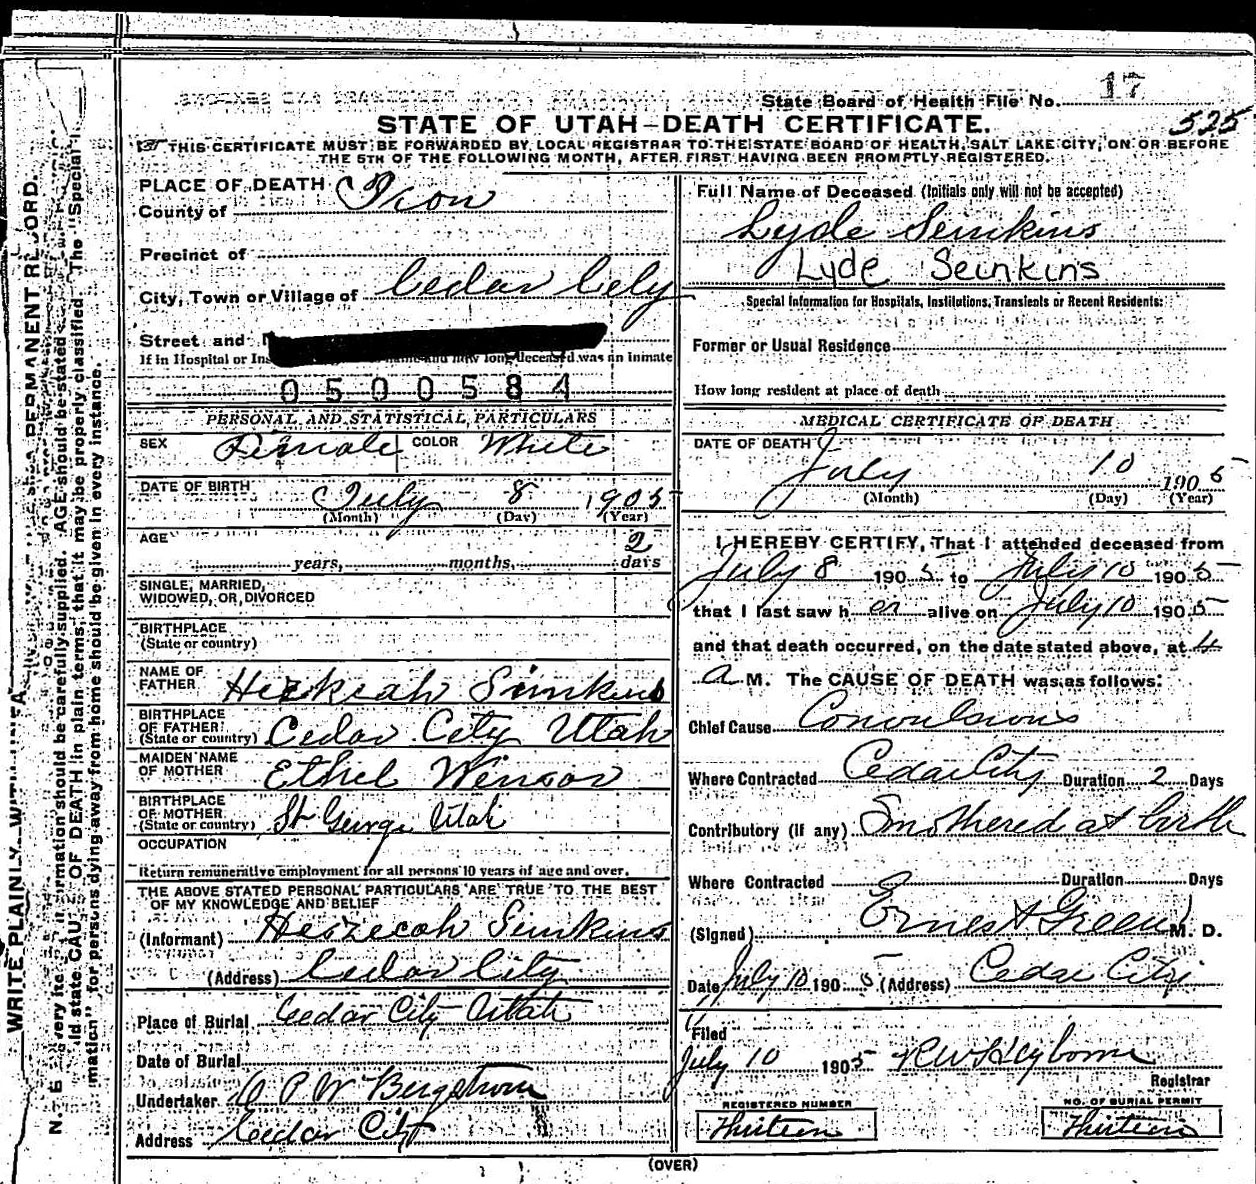 State Board of Health File No. 17
525
STATE OF UTAH—DEATH CERTIFICATE.
THIS CERTIFICATE MUST BE FORWARDED BY LOCAL REGISTRAR TO THE STATE BOARD OF HEALTH, SALT LAKE CITY, ON OR BEFORE
THE 5TH OF THE FOLLOWING MONTH, AFTER FIRST HAVING BEEN PROMPTLY REGISTERED.
PLACE OF DEATH
County of Iron
Precinct of
City, Town or Village of Cedar City
Street and
If in Hospital or Ins name and how long deceased was an inmate
0500584
PERSONAL AND STATISTICAL PARTICULARS
SEX Female COLOR White
DATE OF BIRTH July 8 1905
(Month) (Day) (Year)
AGE 2
years, months, days
SINGLE, MARRIED,
WIDOWED, OR, DIVORCED
BIRTHPLACE
(State or country)
NAME OF
FATHER Hezekiah Simkins
BIRTHPLACE
OF FATHER
(State or country) Cedar City Utah
MAIDEN NAME
OF MOTHER Ethel Winsor
BIRTHPLACE
OF MOTHER
(State or country) St George Utah
OCCUPATION
Return remunerative employment for all persons 10 years of age and over.
THE ABOVE STATED PERSONAL PARTICULARS ARE TRUE TO THE BEST
OF MY KNOWLEDGE AND BELIEF
(Informant) Hezecah Simkins
(Address) Cedar City
Place of Burial Cedar City Utah
Date of Burial
Undertaker P W Bergstrom
Address Cedar City
Full Name of Deceased (Initials only will not be accepted)
Lyde Seinkins
Lyde Seinkins
Special Information for Hospitals, Institutions, Transients or Recent Residents:
Former or Usual Residence
How long resident at place of death
MEDICAL CERTIFICATE OF DEATH
DATE OF DEATH
July 10 1905
(Month) (Day) (Year)
I HEREBY CERTIFY, That I attended deceased from
July 8 1905 to July 10 1905
that I last saw her alive on July 10 1905
and that death occurred, on the date stated above, at 4
a M. The CAUSE OF DEATH was as follows:
Chief Cause Convulsions
Where Contracted Cedar City Duration 2 Days
Contributory (if any) Smothered at birth
Where Contracted Duration Days
(Signed) Ernest Green M. D.
Date July 10 1905 (Address) Cedar City
Filed
July 10 1905 R W Heyborne
Registrar
REGISTERED NUMBER
Thirteen
NO. OF BURIAL PERMIT
Thirteen
(OVER)
WRITE PLAINLY WITH PERMANENT RECORD.
N. B. very ite information should be carefully supplied. AGE should be stated
ld state CAU OF DEATH in plain terms, that it may be properly classified. The "Special
mation" for persons dying away from home should be given in every instance.